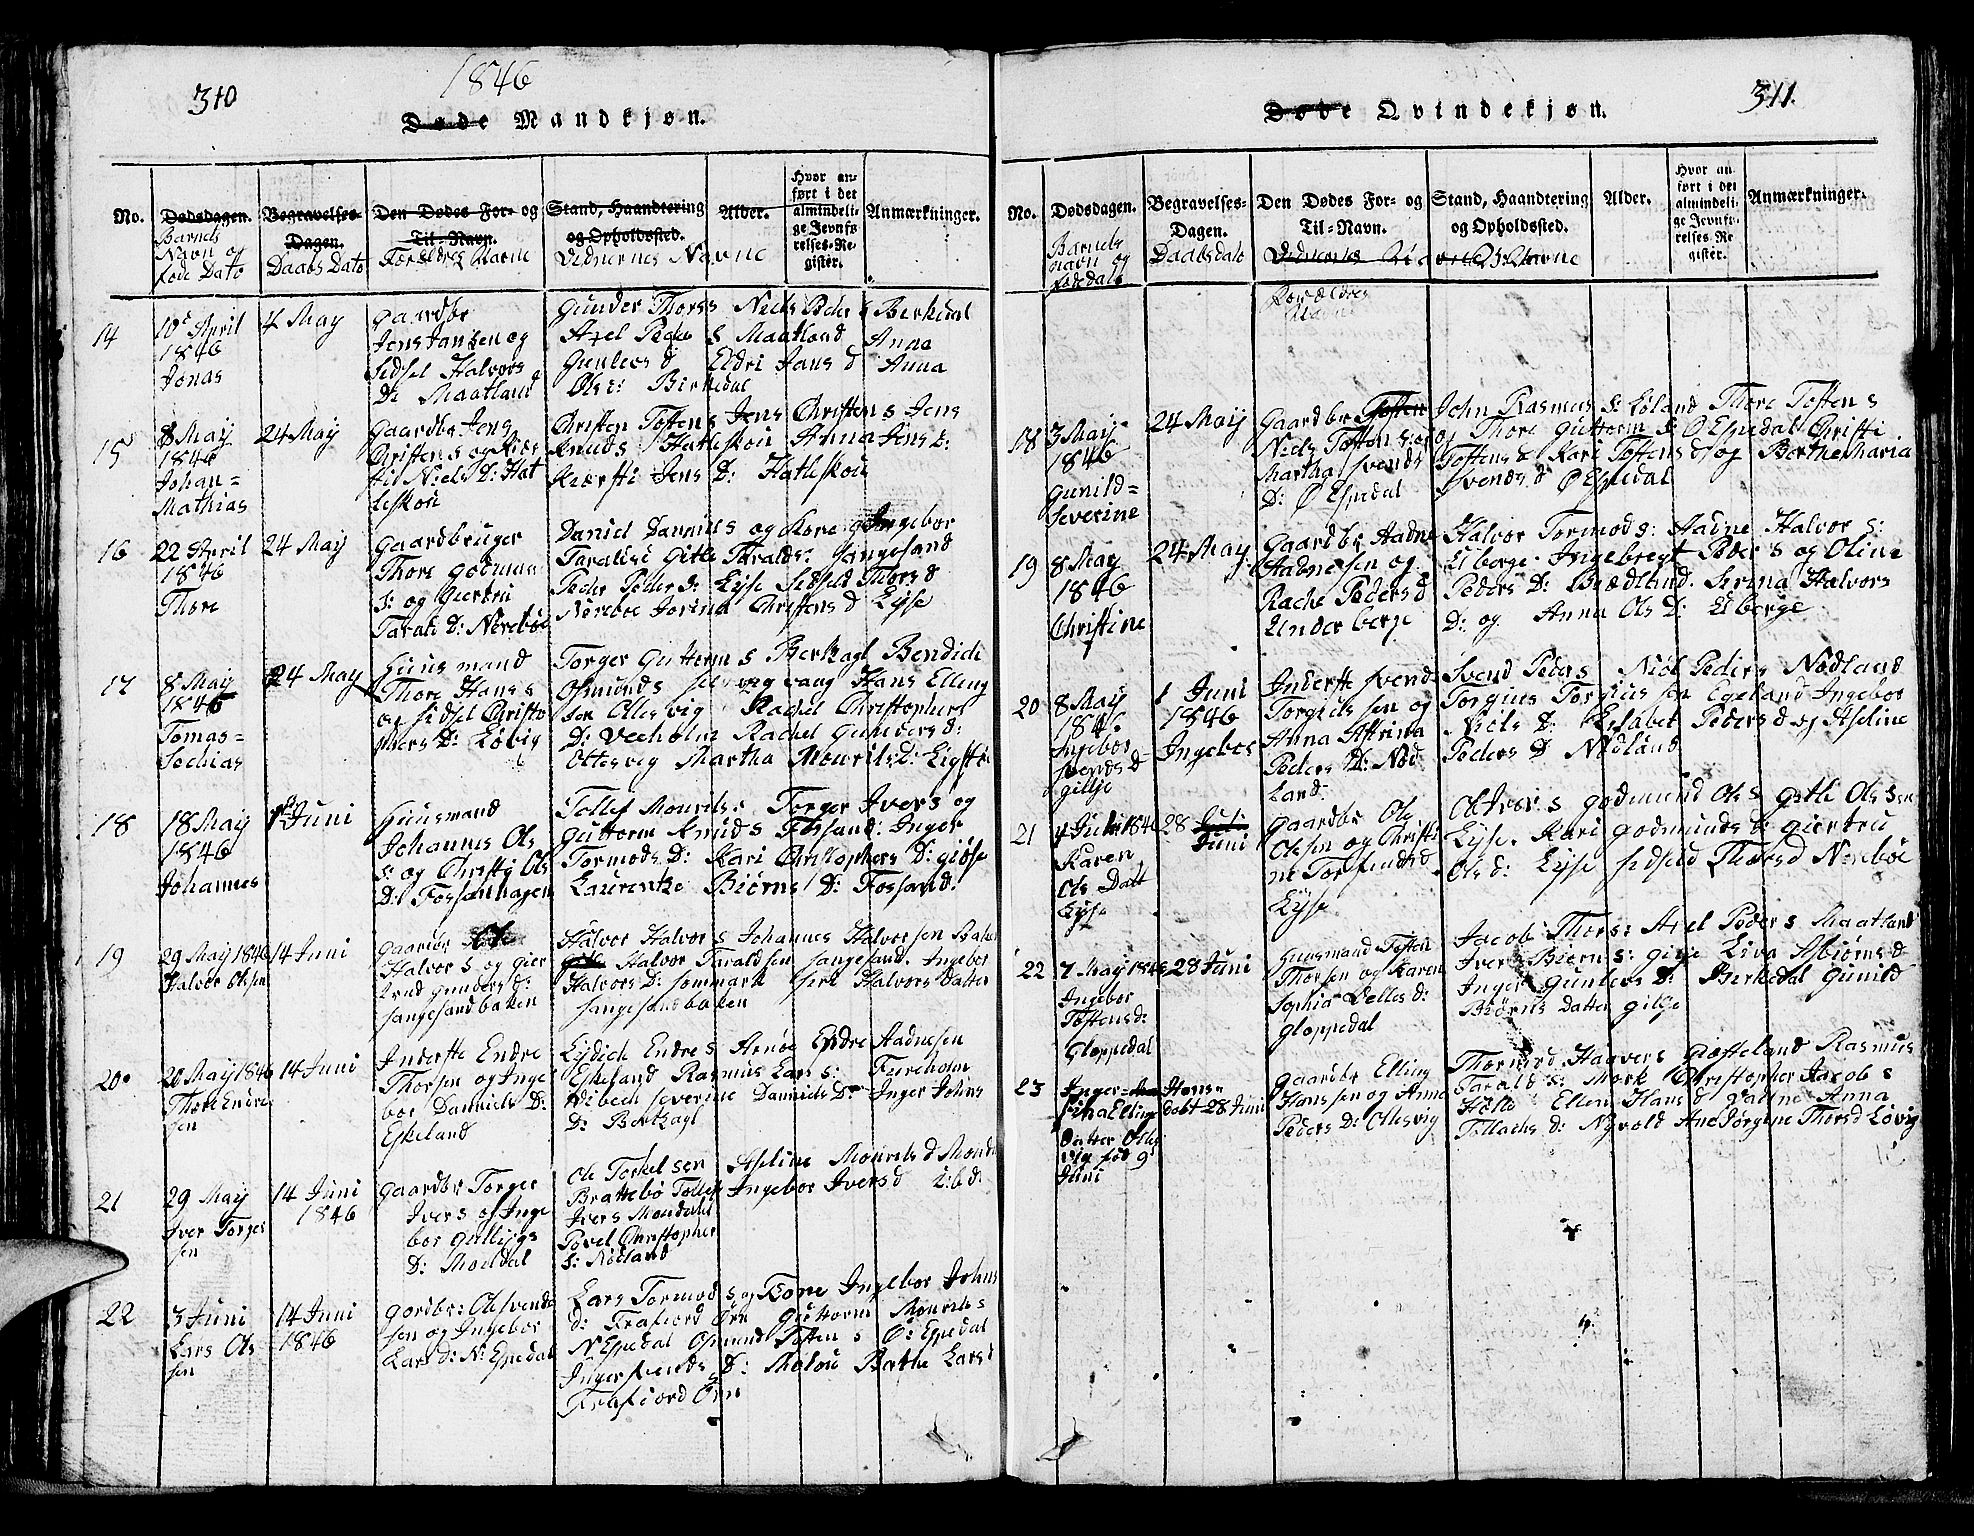 310
1846
Døde Mandkjøn.
No.
Dødsdagen.
Barnets
Navn og
føde Dato
Begravelses-
Dagen.
Daabs Dato
Den Dødes For- og
Til-Navn.
Forældres Navne
Stand, Haandtering
og Opholdssted.
Vidnernes Navne
Alder.
Hvor an-
ført i det
almindeli-
ge Jevnfø-
relses-Re-
gister.
Anmærkninger.
14
10de April
1846
Jonas
4 May
Gaardbr
Jens Jansen og
Sidsel Halvors
D: Maatland
Gunder Thors s Niels Peder s Berkedal
Axel Peder s Maatland Anna
Gunleos d Eldri Jans d Anna
Ols d: Birkedal
15
8 May
1846
Johan=
Mathias
24 May
Gaardbr Jens
Christens og Kier
sti Niels D: Hat
leskou
Christen Tostens Jens Christen s Jens
Knuds Hatleskou Anna Jens D:
Kiærsti Jens D: Hatleskou
16
22 April
1846
Thore
24 May
Gaardbruger
Thore Godmun
S: og Giertri
Tarals D: Nerebøe
Daniel Danniels og Kone Ingebor
Taralds: Gitle Taralds: Sangesand
Peder Peders: Lyse Sidseld Thors d
Nerebøe Jorina Christens d Lyse
17
8 May
1846
Tomas=
Tochias
24 May
Huusmand
Thore Hans s
og Sidsel Christo
phers D: Løvig
Torger Guttorm s Berkagl Bendich
Osmunds Selvigvang Hans Elling
sen Oltesvig Rachel Christophers
D: Veeholm Rachel Gunders d:
Oltesvig Martha Mourits D:
18
18 May
1846
Johannes
1ste Juni
Huusmand
Johannes Ols
S: og Christi Ols
D: Fossanhagen
Tollef Mourits s Torger Ivers og
Guttorm Knuds Fossand: Inger
Tormods D: Kari Christophers D: Giøse
Laurentze Biørns D: Fossand.
19
29 May 1846
Halvor Olsen
14 Juni
Gaardbr Ole
Halvor s og Gier
trud Gunders d:
Sangesandbaken
Halvor Halvor s Johannes Halvorsen
Halvor Taraldsen Sangesand. Ingebor
Halvors D: Sommark Siri Halvors Datter
Sangesandbaken
20
20 May 1846
Thore Endre
sen
14 Juni
Inderste Endre
Thorsen og Inge
bor Danniels D:
Eskeland
Eydich Endre s Arnøe Endre Aadnesen
Eskeland Rasmus Lars s: Fureholm
Wibech Severine Danniels D: Inger Johns
D: Berkagl
21
29 May
Iver Torger
sen
14 Juni
1846
Gaardbr Torger
Ivers og Inge
bor
D: Moedal
Ole Torkelsen Aseline Mourits d
Brattebø Tollef Ingebor Ivers d
Ivers
Povel Christopher
S: Nødland
22
3 Juni
Lars Ols
sen
14 Juni
1846
Gardbr: Ole Svends
sen og Ingebor
Lars D: N: Espedal
Lars Tormod s og Kone Ingebor Johns
d: Frafiord Ørn Guttorm Mourits s
N Espedal Osmund Tosten s Ø: Espedal
Inger Svends D: Berthe Lars d
Frafiord Ørn
311.
Døde Qvindekjøn.
No.
Dødsdagen.
Barnets
navn og
fødedato
Begravelses-
Dagen.
Daabsdato
Den Dødes For- og
Til-Navn.
Forældres
Navne
Stand, Haandtering
og Opholdssted.
Alder.
Hvor an-
ført i det
almindeli-
ge Jevnfø-
relses-Re-
gister.
Anmærkninger.
18
3 May
1846
Gunild=
Severine
24 May
Gaardbr Tosten
Niels Tosten s: og
Martha Svends
D: Ø Espedal
John Rasmus s: Løland Thore Tosten s
og Thore Guttorm s: Ø Espedal Christi
Tostens d Kari Tostens d og Berthe Maria
Svends d Ø Espedal
19
8 May
1846
Christine
24 May
Gaardbr Aadne
Aadnesen og
Rache Peders d
Underberge
Halvor Tormod s: Aadne Halvor s:
Elberge Ingebregt Peder s og Oline
Peders D: Brædland. Serina Halvors
D: og Anna Ols D: Elberge
20
8 May
1846
Ingebor
Svends d
Gillje
1 Juni
1846
Ingebor
Inderste Svend
Torgiussen og
Anna Atrina
Peders D: Nød
land
Svend Peders Niels Peders Nødland
Torgius Torgiussen Egeland Ingebor
Niels D: Elisabet Peders d og Aseline
Peders D Nødland
21
4 Juni 1846
Karen
Ols Datt
Lyse
28 Juli
Juni
Gaardbr Ole
Olesen og Christi
ne Torfinds d
Lyse
Ole Iver s Godmund Ols s Gitli Olssen
Lyse. Kari Godmunds d: Giertru
Ols d: Lyse Sidseld Thors d Nerebøe
22
7 May 1846
Ingebor
Tostensd:
Gloppedal
28 Juni
Huusmand Tosten
Thorsen og Karen
Sophia Velles d:
Gloppedal
Jacob Thors: Axel Peder s Maatland
Iver Biørn s: Gilje Liva Asbiørns d:
Inger Gunleos D: Berkedal Gunild
Biørns Datter Gilje
23
Inger
sina Elling
Datter Oltes
vig fød 9
Juni
Hans-
døbt 28 Juni
Gaardbr Elling
Hanssen og Anna
Peders D: Oltesvig
Thormod Haavers Giøsteland Rasmus
Taralds: Mork Christopher Jacob s
Holte Ellen Hans d Anna
Tollachs d: Nyvold Ane Jørgine Thors d Løvig